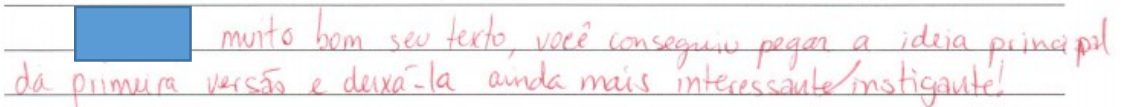 muito bom seu texto, você conseguiu pegar a ideia principal
da primeira versão e deixá-la ainda mais interessante/instigante!